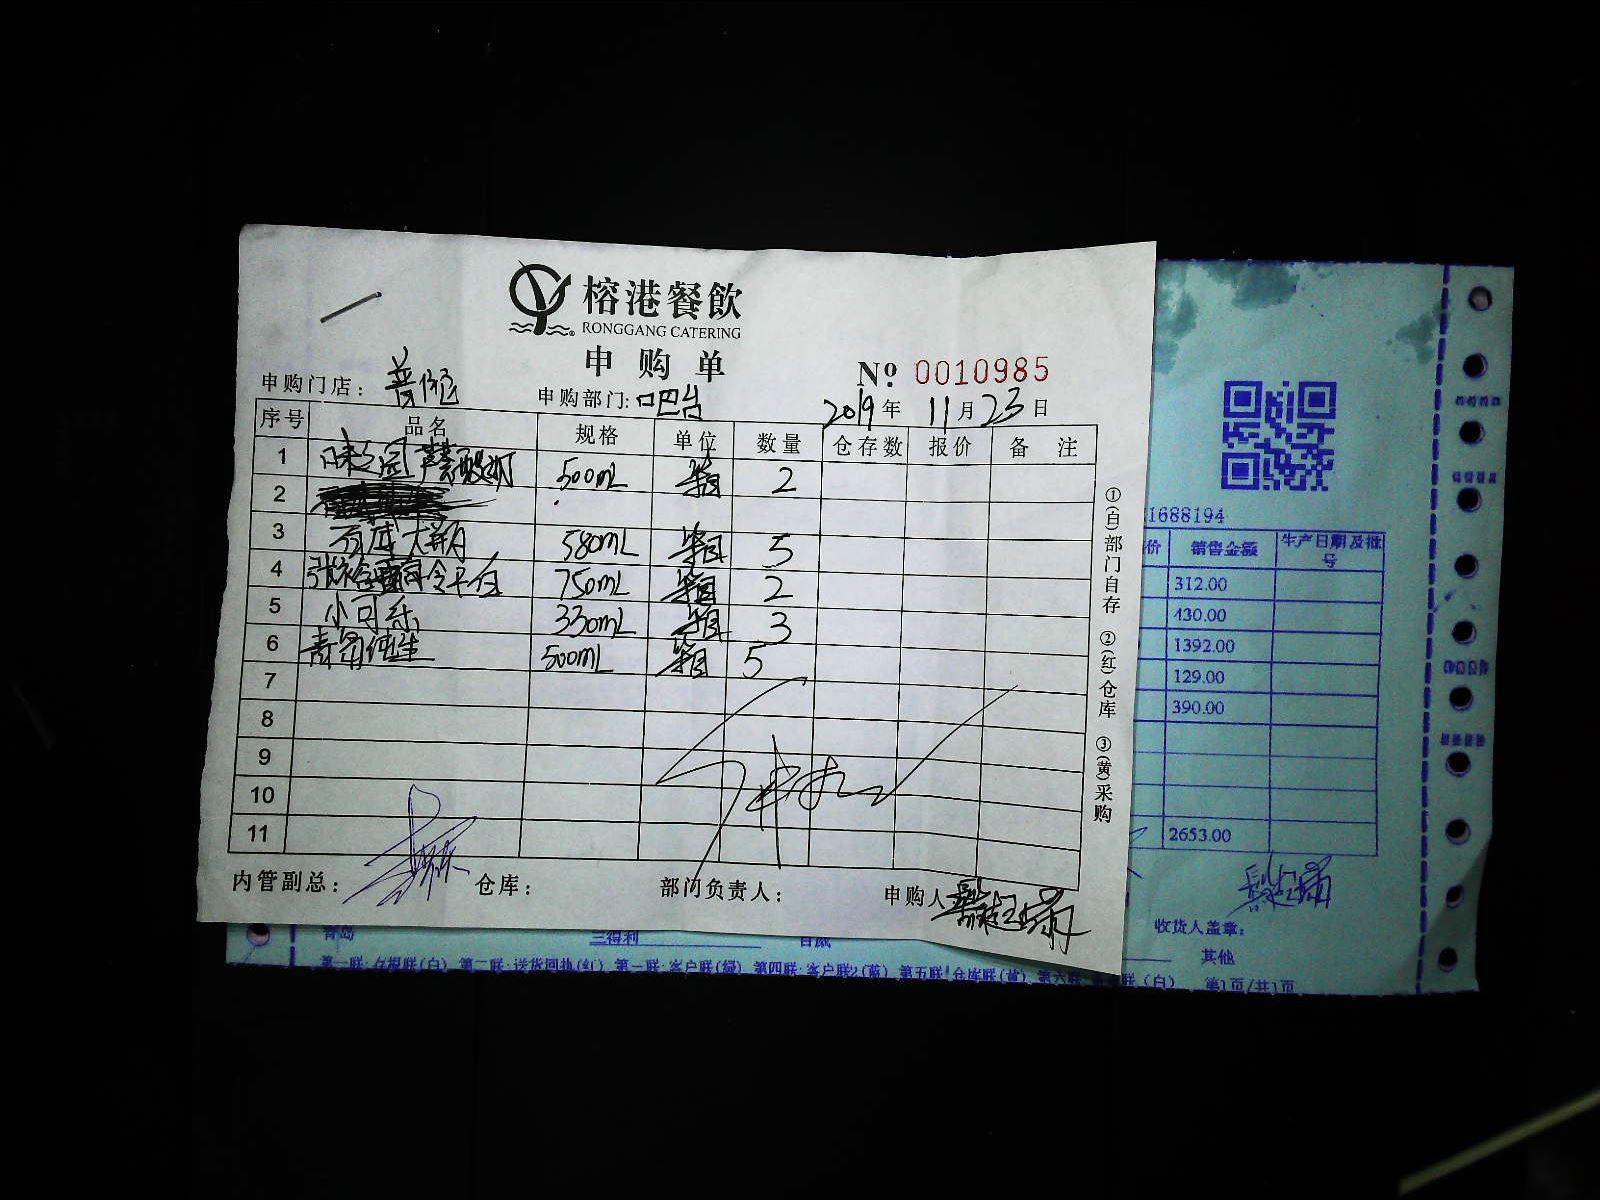 榕港餐飲
RONGGANG CATERING
申购单
№ 0010985
申购门店： 申购部门: 吧台 2019年11月23日
序号 品名 规格 单位 数量 仓存数 报价 备注
1 500mL 箱 2
2
3 580mL 箱 5
4 750mL 箱 2
5 小可乐 330mL 箱 3
6 青岛纯生 500mL 箱 5
7
8
9
10
11
内管副总： 仓库： 部门负责人： 申购人
①(白)部门自存 ②(红)仓库 ③(黄)采购
1688194
价 销售金额 生产日期及批号
312.00
430.00
1392.00
129.00
390.00
2653.00
收货人盖章：
青岛 三得利 其他
第一联：存根联(白) 第二联：送货回执(红) 第三联：客户联(绿) 第四联：客户联2(蓝) 第五联：仓库联(黄) 第六联 (白) 第1页/共1页